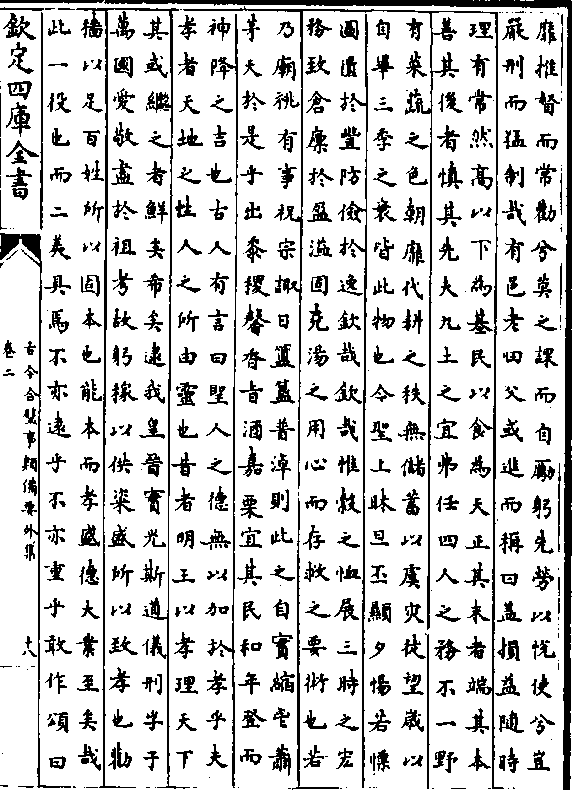 靡推督而常勸兮莫之課而自勵躬先勞以悅使兮豈
嚴刑而猛制哉有邑老田父或進而稱曰蓋損益隨時
理有常然高以下為基民以食為天正其末者端其本
善其後者慎其先夫九土之宜弗任四人之務不一野
有菜蔬之色朝靡代耕之秩無儲蓄以虞災徒望歲以
自畢三季之衰皆此物也今聖上昧旦丕顯夕惕若慄
圖匱於豐防儉於逸欽哉欽哉惟穀之恤展三時之宏
務致倉廩於盈溢固堯湯之用心而存救之要術也若
乃廟祧有事祝宗諏日簠簋普淖則此之自實縮鬯蕭
茅天於是乎出黍稷馨香旨酒嘉栗宜其民和年登而
神降之吉也古人有言曰聖人之德無以加於孝乎夫
孝者天地之性人之所由靈也昔者明王以孝理天下
其或繼之者鮮矣希矣逮我皇晉實光斯道儀刑孚于
萬國愛敬盡於祖考故躬稼以供粢盛所以致孝也勸
穡以足百姓所以固本也能本而孝盛德大業至矣哉
此一役也而二美具焉不亦遠乎不亦重乎敢作頌曰
欽定四庫全書
古今合璧事類備要外集
卷二
十八